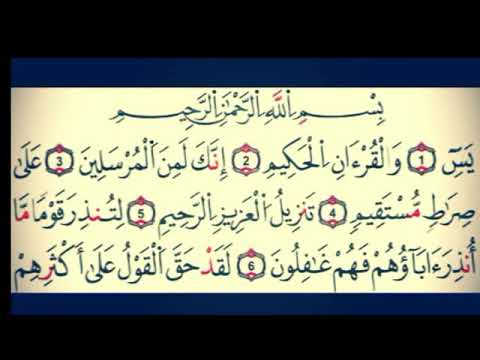 بِسْمِ اللَّهِ الرَّحْمَٰنِ الرَّحِيمِ
يَسٓ ۝1 وَالْقُرْءَانِ الْحَكِيمِ ۝2 إِنَّكَ لَمِنَ الْمُرْسَلِينَ ۝3 عَلَىٰ
صِرَاطٍ مُّسْتَقِيمٍ ۝4 تَنزِيلَ الْعَزِيزِ الرَّحِيمِ ۝5 لِتُنذِرَ قَوْمًا مَّا
أُنذِرَ ءَابَآؤُهُمْ فَهُمْ غَافِلُونَ ۝6 لَقَدْ حَقَّ الْقَوْلُ عَلَىٰ أَكْثَرِهِمْ